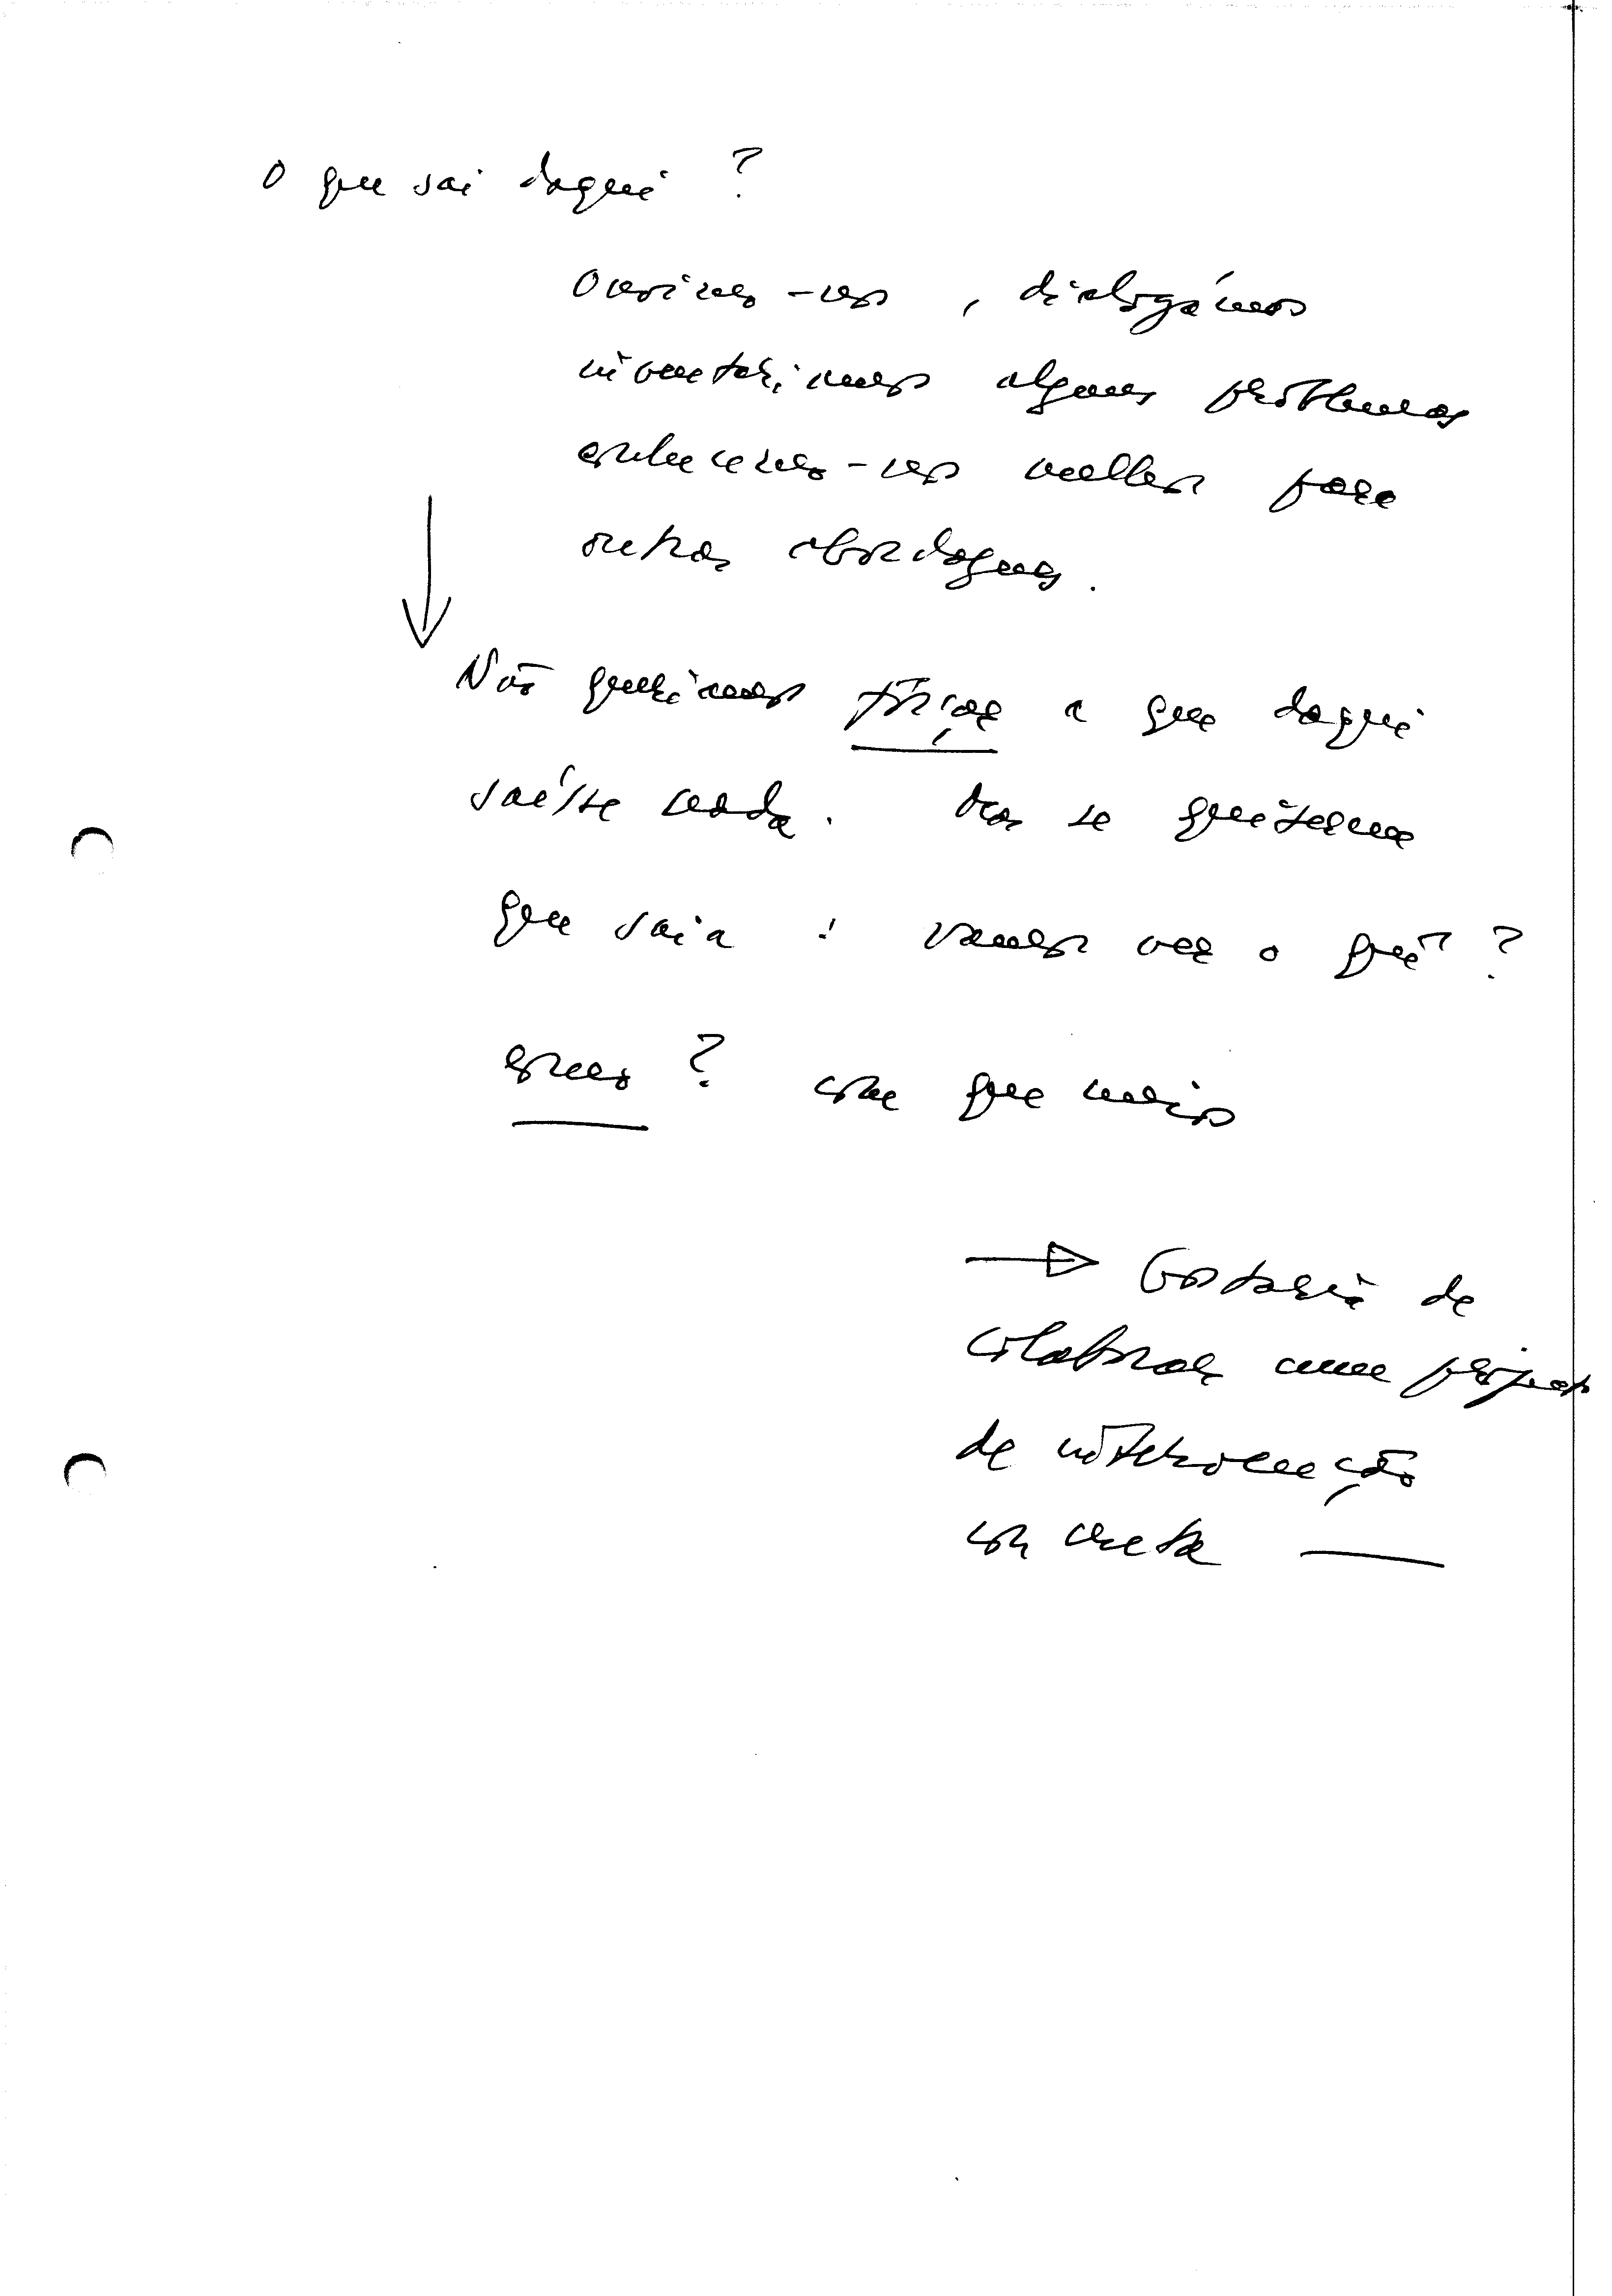 O que sai daqui ?
Ouvimo-nos, dialogámos
inventariámos alguns problemas
conhecemo-nos melhor para
outras abordagens.
Não queríamos forçar a que daqui
saísse nada. Mas se quiserem
que saia : vamos ver o quê ?
como ? com que meios
Gostaria de
colaborar num projecto
de intervenção
concreta —